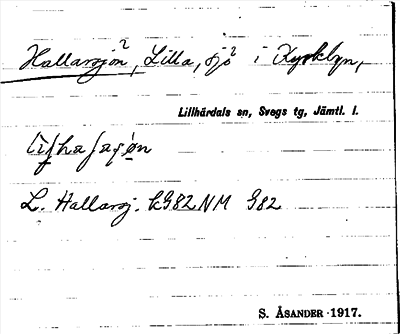 Hallarsjön², Lilla, sjö² i Kyrkbyn,
Lillhärdals sn, Svegs tg, Jämtl. l.
L. Hallarsj. k G82 NM G82
S. ÅSANDER 1917.